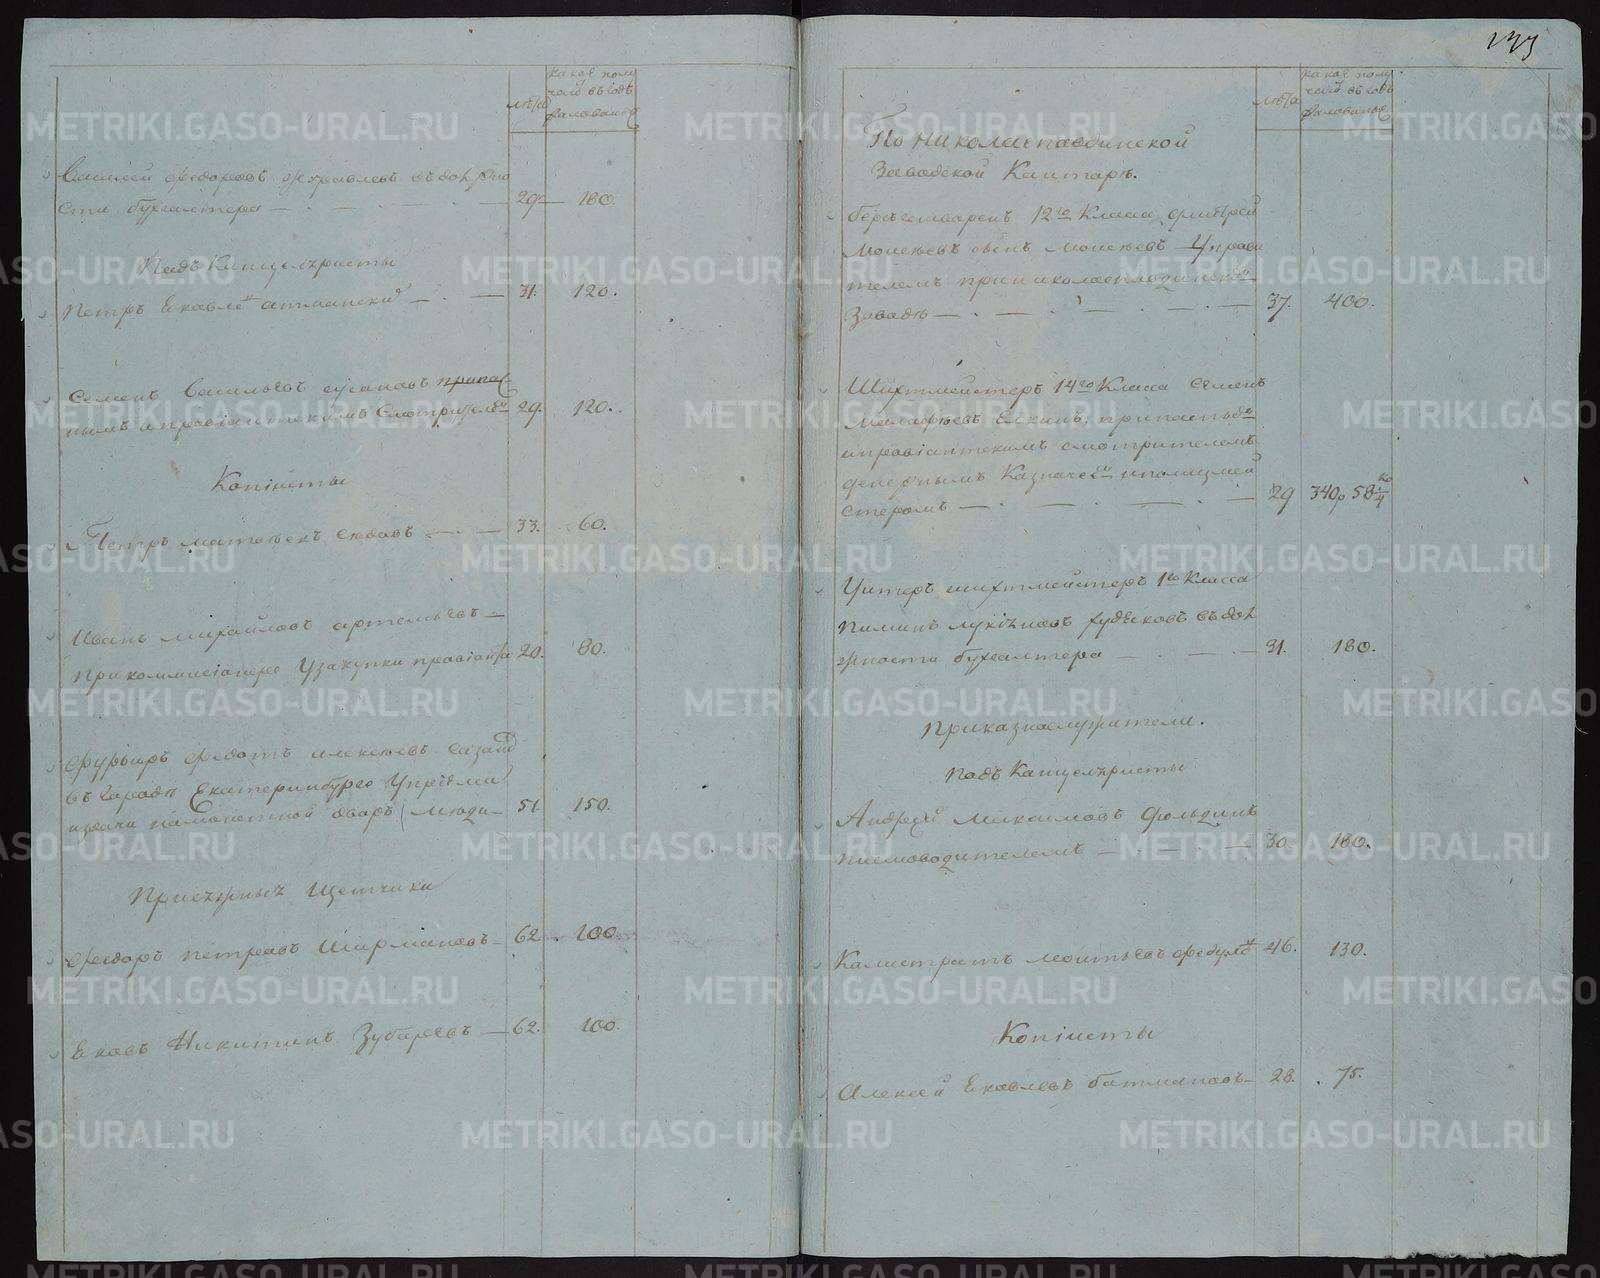 лѣта
какое полу
чаетъ въ годъ
жалованье
Василей Федоровъ Журавлевъ въ должно
сти бухгалтера — 29 — 180.
Подъ Канцеляристы
Петръ Яковле — 31. 120.
Семенъ Васильевъ Сусановъ припас
нымъ и провіантскимъ смотрителем 29. 120.
Копіисты
Петръ — 33. 60.
Иванъ Михайловъ Артемьевъ —
При коммисіонере У закупки провіанта 20. 80.
Фурьеръ Федотъ Алексеевъ
въ городе Екатеринбурге
двор 51. 150.
Присяжные Щетчики
Федоръ Петровъ Ширмановъ — 62. 100.
Яковъ Никитинъ Зубаревъ — 62. 100.
лѣта
какое полу
чаетъ въ годъ
жалованье
По Николаепавдинской
Заводской Канторѣ.
Берггешворенъ 12го Класса Дмитрей
Моисеевъ сынъ Моисеевъ Управи
телемъ при николаепавдинском
Заводе — 37. 400.
Шихтмейстеръ 14го Класса Семенъ
Елкинъ, припасным
и провіантскимъ смотрителемъ
денежнымъ Казначеем и полицмей
стеромъ — 29 340р 58 1/4 ко
Унтеръ шихтмейстеръ 1го Класса
Пименъ Лукіяновъ Худяковъ въ дол
жности бухгалтера — 31. 180.
Приказнослужители.
Подъ Канцеляристы
Андрей Максимовъ Фольдинъ
писмоводителемъ — 30. 180.
Калистратъ 46. 130.
Копіисты
Алексей Яковлевъ батмановъ — 28. 75.
METRIKI.GASO-URAL.RU